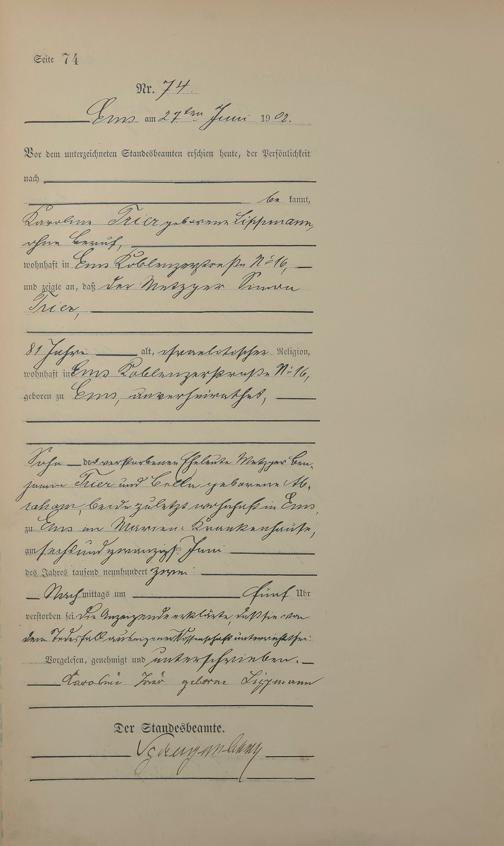 Seite 74
Nr. 74.
Ems am 27ten Juni 1902.
Vor dem unterzeichneten Standesbeamten erschien heute, der Persönlichkeit
nach
be kannt,
Karoline Trier geborene Lippmann,
ohne Beruf,
wohnhaft in Ems Koblenzerstraße No 16,
und zeigte an, daß der Metzger Simon
Trier,
81 Jahre alt, israelitischer Religion,
wohnhaft in Ems Koblenzerstraße No 16,
geboren zu Ems, unverheirathet,
Sohn der verstorbenen Eheleute Metzger Ben-
jamin Trier und Bella geborene Ab-
raham, beide zuletzt wohnhaft in Ems,
zu Ems im Marien-Krankenhause,
am sechsundzwanzigsten Juni
des Jahres tausend neunhundert zwei
Nach mittags um fünf Uhr
verstorben sei. Die Anzeigende erklärte, daß sie von
dem Todesfall aus eigener Wissenschaft unterrichtet sei.
Vorgelesen, genehmigt und unterschrieben.
Karoline Trier geborene Lippmann
Der Standesbeamte.